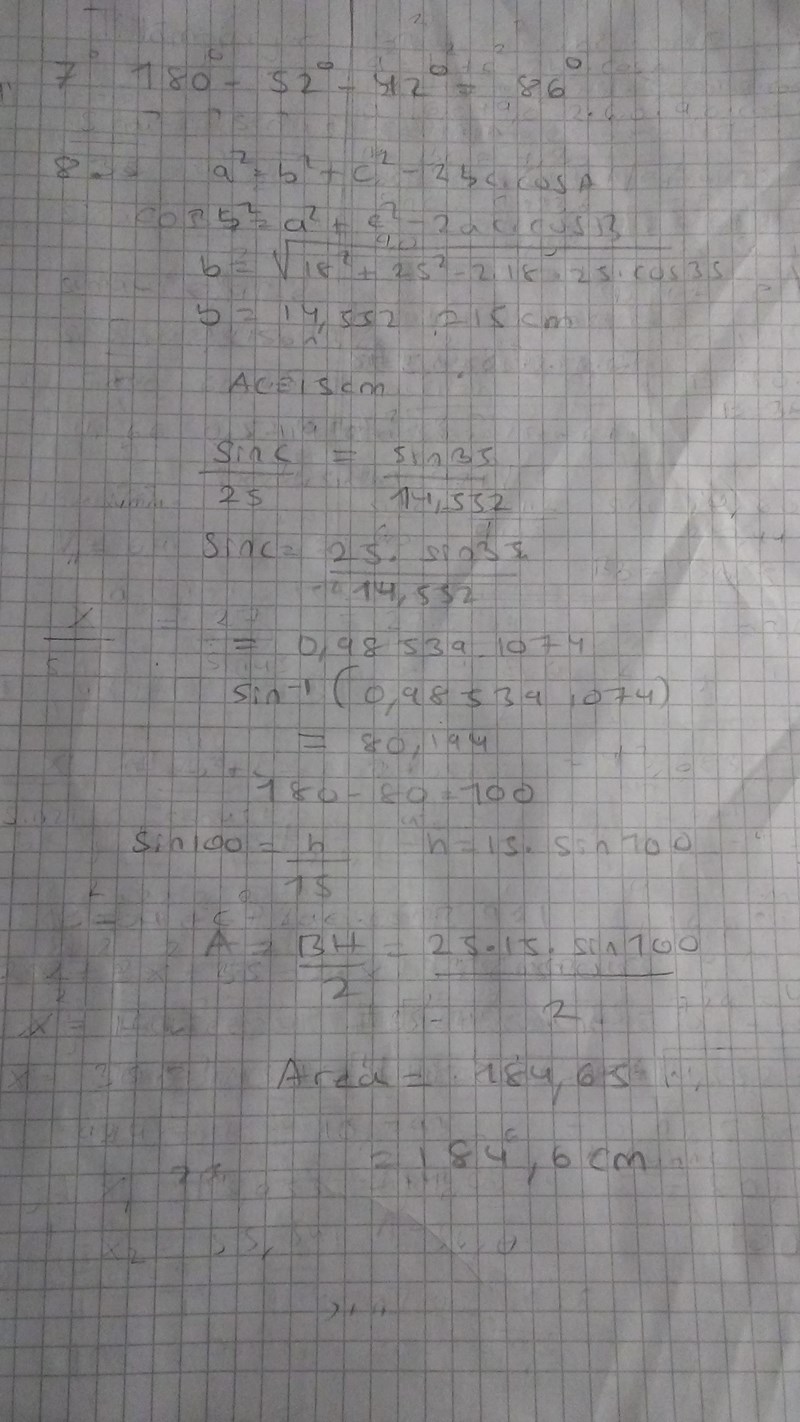 7° 180° - 52° - 42° = 86°
8 a² = b² + c² - 2bc.cosA
b² = a² + c² - 2ac.cosB
b = √18² + 25² - 2.18.25.cos35
b = 14,552 = 15cm
AC=15cm
sin c / 25 = sin35 / 14,552
sin c = 25. sin35 / 14,552
= 0,985391074
sin⁻¹ (0,985391074)
= 80,194
180 - 80 = 100
sin100 = h / 15 h = 15. sin100
A = BH / 2 = 25.15. sin100 / 2
Area = 184,65
= 184,6 cm